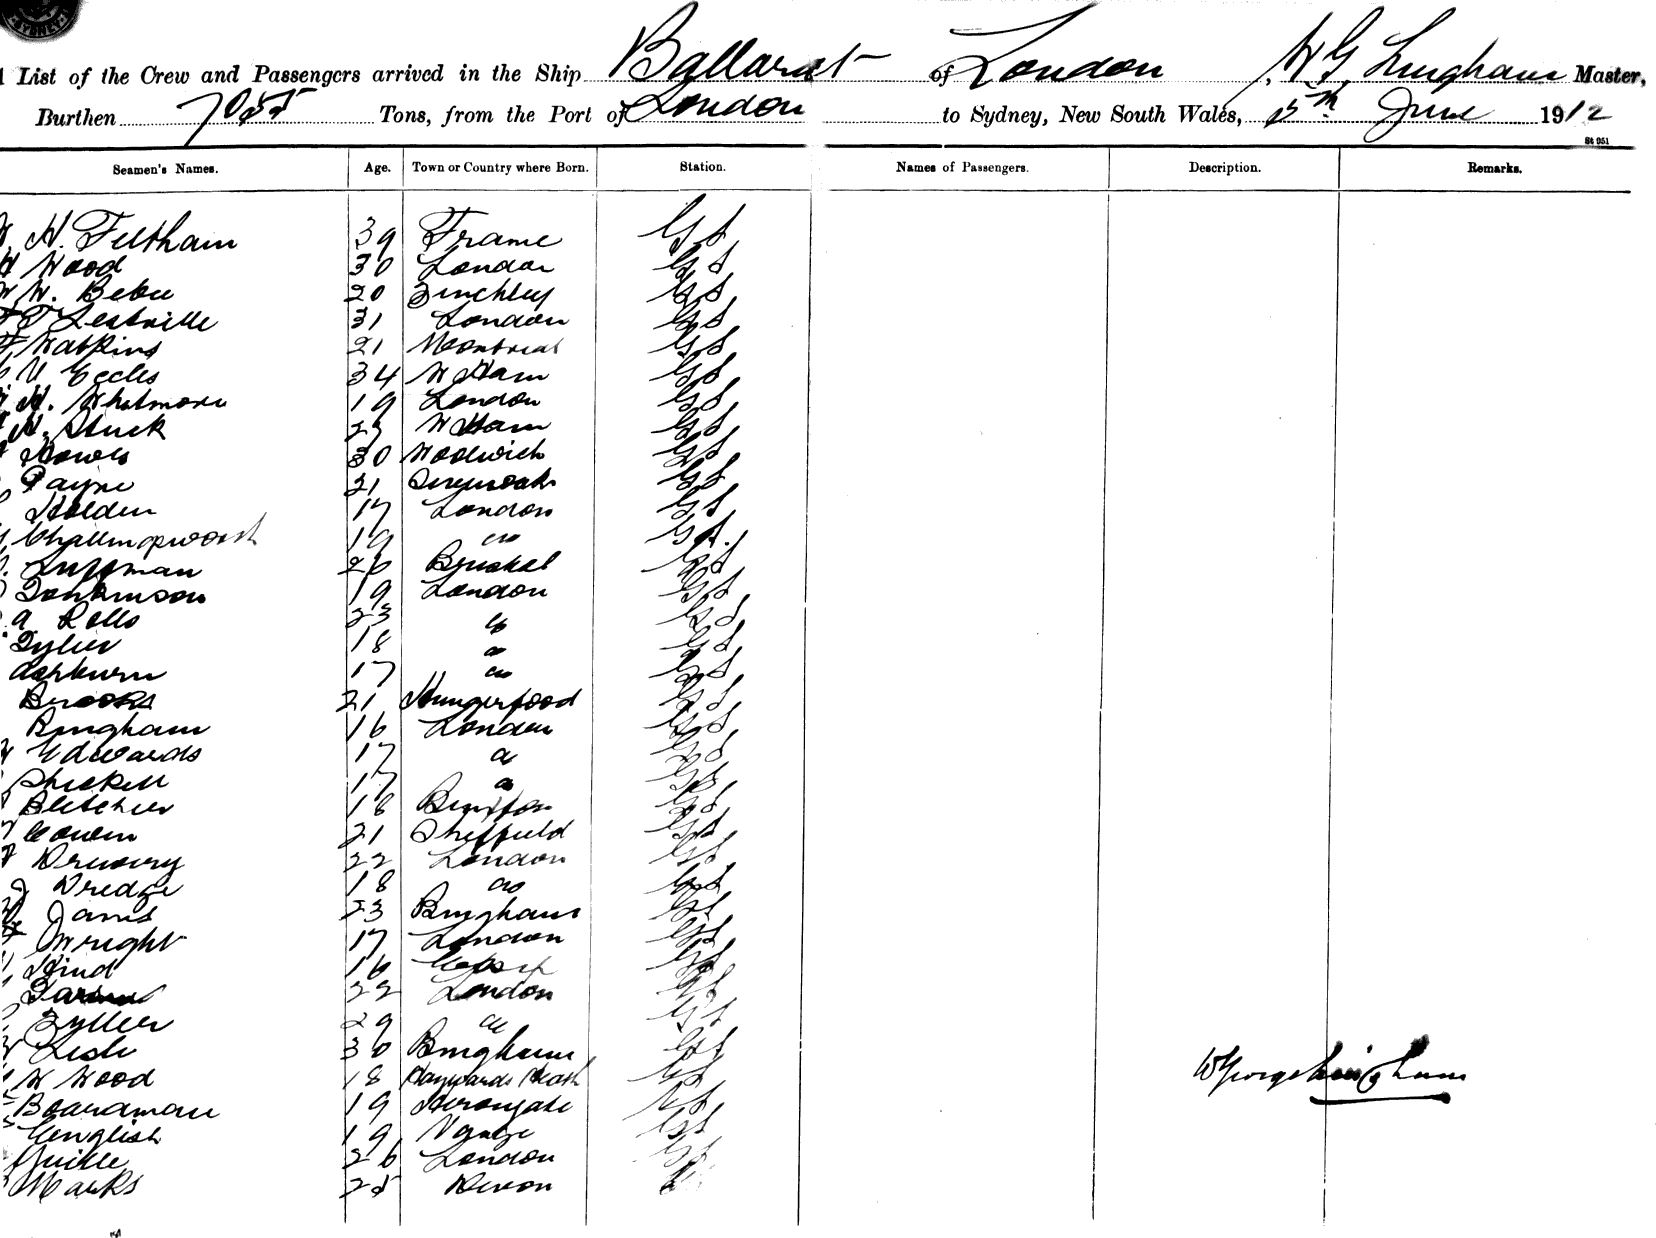 SYDNEY
List of the Crew and Passengers arrived in the Ship Ballarat of London, W G Lingham Master,
Burthen 7055 Tons, from the Port of London to Sydney, New South Wales, 5th June 1912
St 951
Seamen's Names. Age. Town or Country where Born. Station. Names of Passengers. Description. Remarks.
H. Feltham 39 Frame G S
Wood 30 London G S
W. Bebee 20 Finchley G S
31 London G S
Watkins 21 Montreal G S
V Eccles 34 W Ham G S
H. Whatmore 19 London G S
H. Stuck W Ham G S
Howes 30 Woodwich G S
Payne 21 Sevenoaks G S
Holden 17 London G S
Challingsworth 19 " G S.
Luffman 26 Bristol G S
Tomkinson 19 London G S
a Rolls 23 " G S
Tyler 18 " G S
Ashburn 17 " G S
Brooks 21 Hungerford G S
Bingham 16 London G S
Edwards 17 " G S
Shickell 17 " G S
Bletcher 18 G S
Cowen 21 Sheffield G S
Drewery 22 London G S
J Dredge 18 " G S
Janis 23 Bingham G S
Wright 17 London G S
Hind 16 G S
22 London G S
Fyller 29 " G S
Lesli 30 Bingham G S
W Wood 18 Haywards Heath G S
Boardman 19 Herongate G S
English 19 Vange G S
Guille 26 London G S
Marks 25 Devon G
WGeorge Lingham